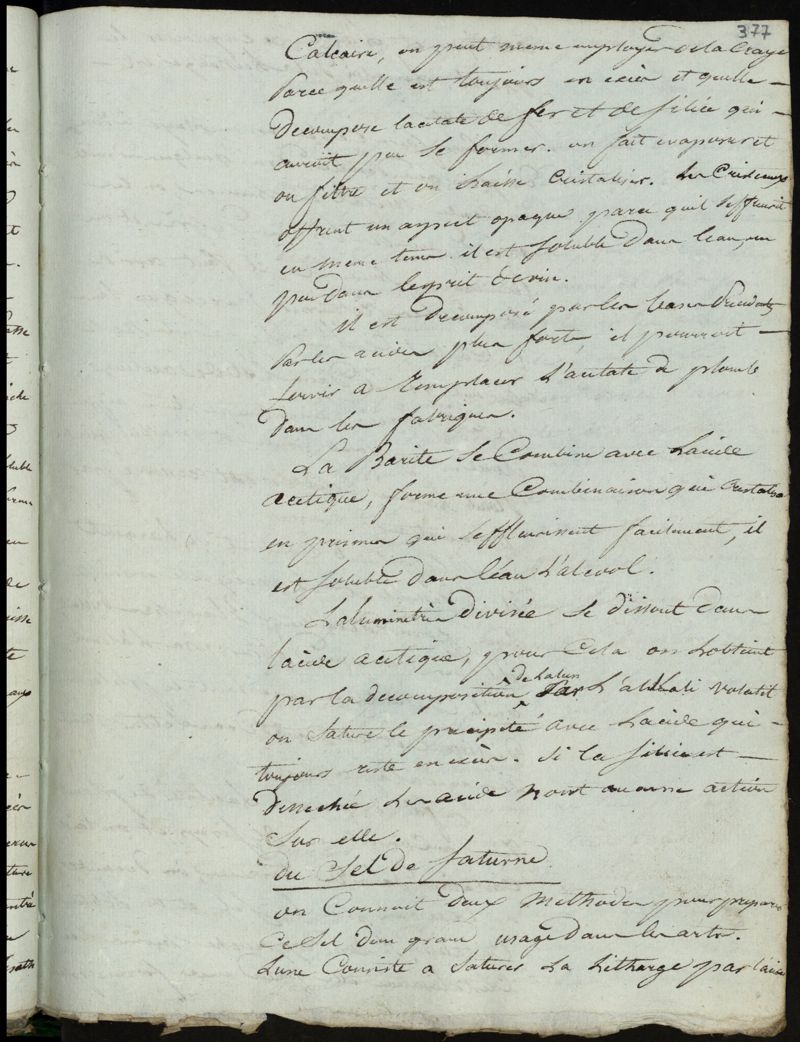 377
Calcaire, on peut meme employer de la Craye
parce quelle est toujours en excès et quelle
Decompose lacetate de fer et de silice qui
auroit peu se former. on fait evaporer et
on filtre et on laisse Cristaliser. Les Cristeaux
offrent un aspect opaque parce quil s'effleurit
en meme tems. il est soluble Dans leau, un
peu Dans lesprit de vin.
il est Decomposé par les bases
par les acides plus forts, il pourroit
servir a remplacer L'acetate de plomb
Dans les fabriques.
La Barite se Combine avec Lacide
acetique, forme une Combinaison qui Cristalise
en prismes qui seffleurissent facilement, il
est soluble Dans léau L'alcool.
Divisée se dissout Dans
lacide acetique, pour Cela on Lobtient
par la decomposition de Lalun Par L'alkali volatil
on sature le precipité avec Lacide qui
toujours reste en excès. si la silice est
Dessechée Les acides n'ont aucune action
sur elle.
du Sel de Saturne
on Connoit Deux Methodes pour preparer
Ce Sel d'un grand usage Dans les arts.
Lune Consiste a saturer La Litharge par lacide